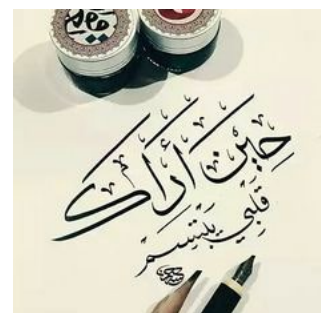 حِينَ أَرَاكَ
قَلْبِي يَبْتَسِمُ